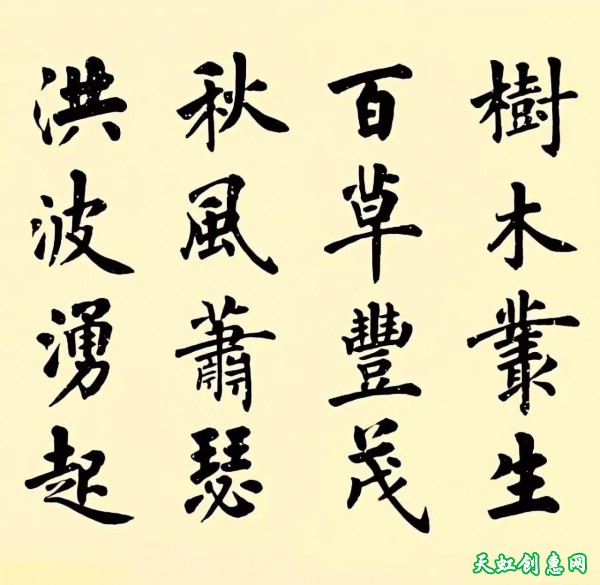 樹木叢生
百草豐茂
秋風蕭瑟
洪波湧起
天虹创惠网